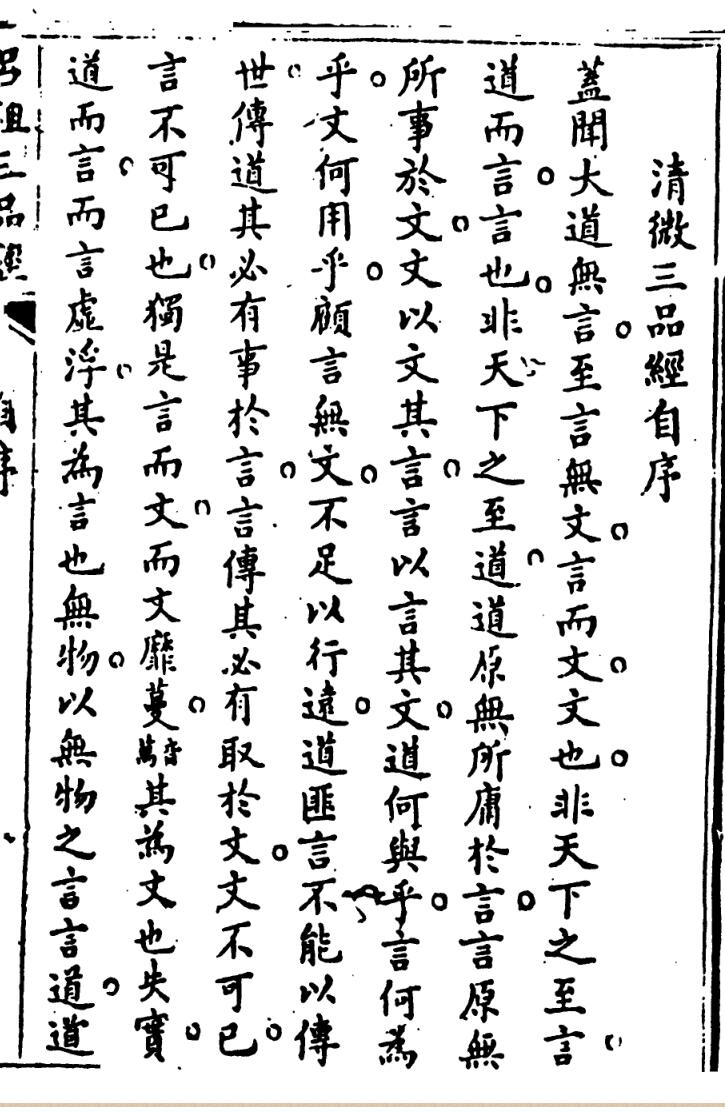 清微三品經自序
蓋聞大道無言至言無文言而文文也非天下之至言
道而言言也非天下之至道道原無所庸於言言原無
所事於文文以文其言言以言其文道何與乎言何為
乎文何用乎顧言無文不足以行遠道匪言不能以傳
世傳道其必有事於言言傳其必有取於文文不可已
言不可已也獨是言而文而文靡蔓音萬其為文也失實
道而言而言虛浮其為言也無物以無物之言言道道
呂祖三品經 自序